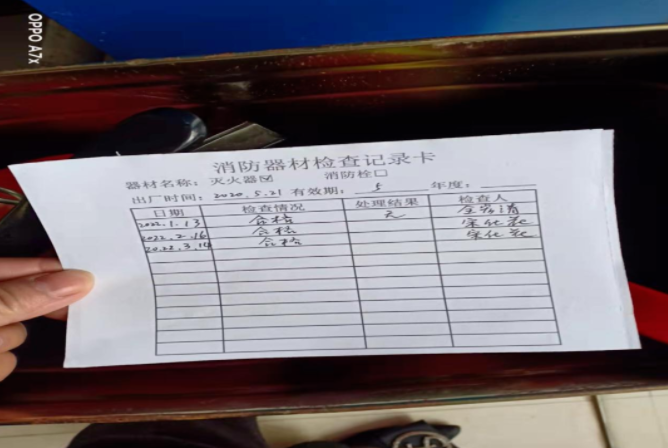 OPPO A7x
消防器材检查记录卡
器材名称: 灭火器☑ 消防栓□
出厂时间: 2020.5.21 有效期: 5 年度:
日期 检查情况 处理结果 检查人
2022.1.13 合格 无
2022.2.16 合格
2022.3.14 合格